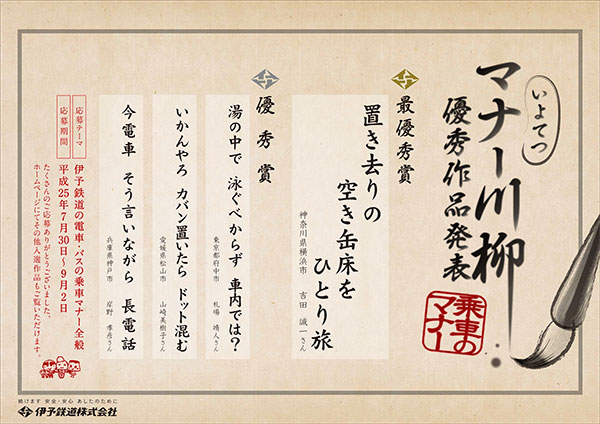 いよてつ
マナー川柳
優秀作品発表
乗車の
マナー
最優秀賞
置き去りの
空き缶床を
ひとり旅
神奈川県横浜市 吉田 誠一さん
優秀賞
湯の中で 泳ぐべからず 車内では?
東京都府中市 札場 靖人さん
いかんやろ カバン置いたら ドット混む
愛媛県松山市 山崎美樹子さん
今電車 そう言いながら 長電話
兵庫県神戸市 岸野 孝彦さん
応募テーマ 伊予鉄道の電車・バスの乗車マナー全般
応募期間 平成25年7月30日〜9月2日
たくさんのご応募ありがとうございました。
ホームページにてその他入選作品もご覧いただけます。
続けます 安全・安心 あしたのために
伊予鉄道株式会社